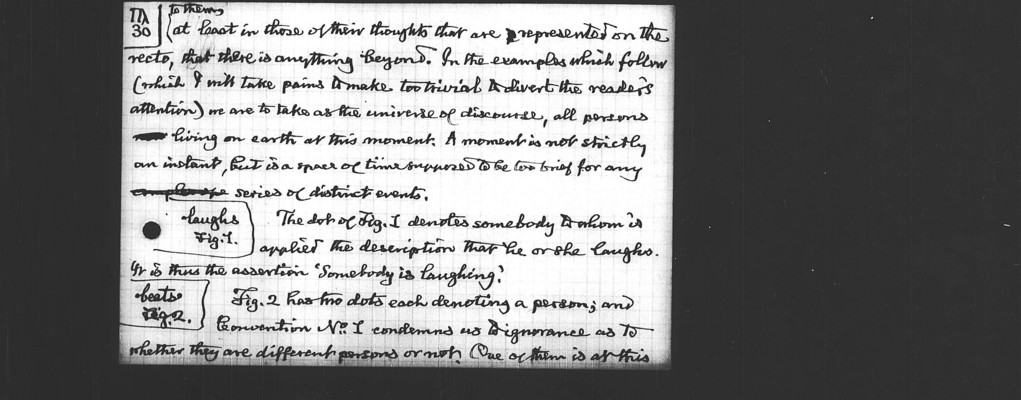 ΠΛ
30
to them
at least in those of their thoughts that are represented on the
recto, that there is anything beyond. In the examples which follow
(which I will take pains to make too trivial to divert the reader's
attention) we are to take as the universe of discourse, all persons
living on earth at this moment. A moment is not strictly
an instant, but is a space of time supposed to be too brief for any
series of distinct events.
laughs
Fig. 1.
The dot of Fig. 1 denotes somebody to whom is
applied the description that he or she laughs.
It is thus the assertion 'Somebody is laughing.'
beats
Fig. 2.
Fig. 2 has two dots each denoting a person; and
Convention No. 1 condemns us to ignorance as to
whether they are different persons or not. One of them is at this